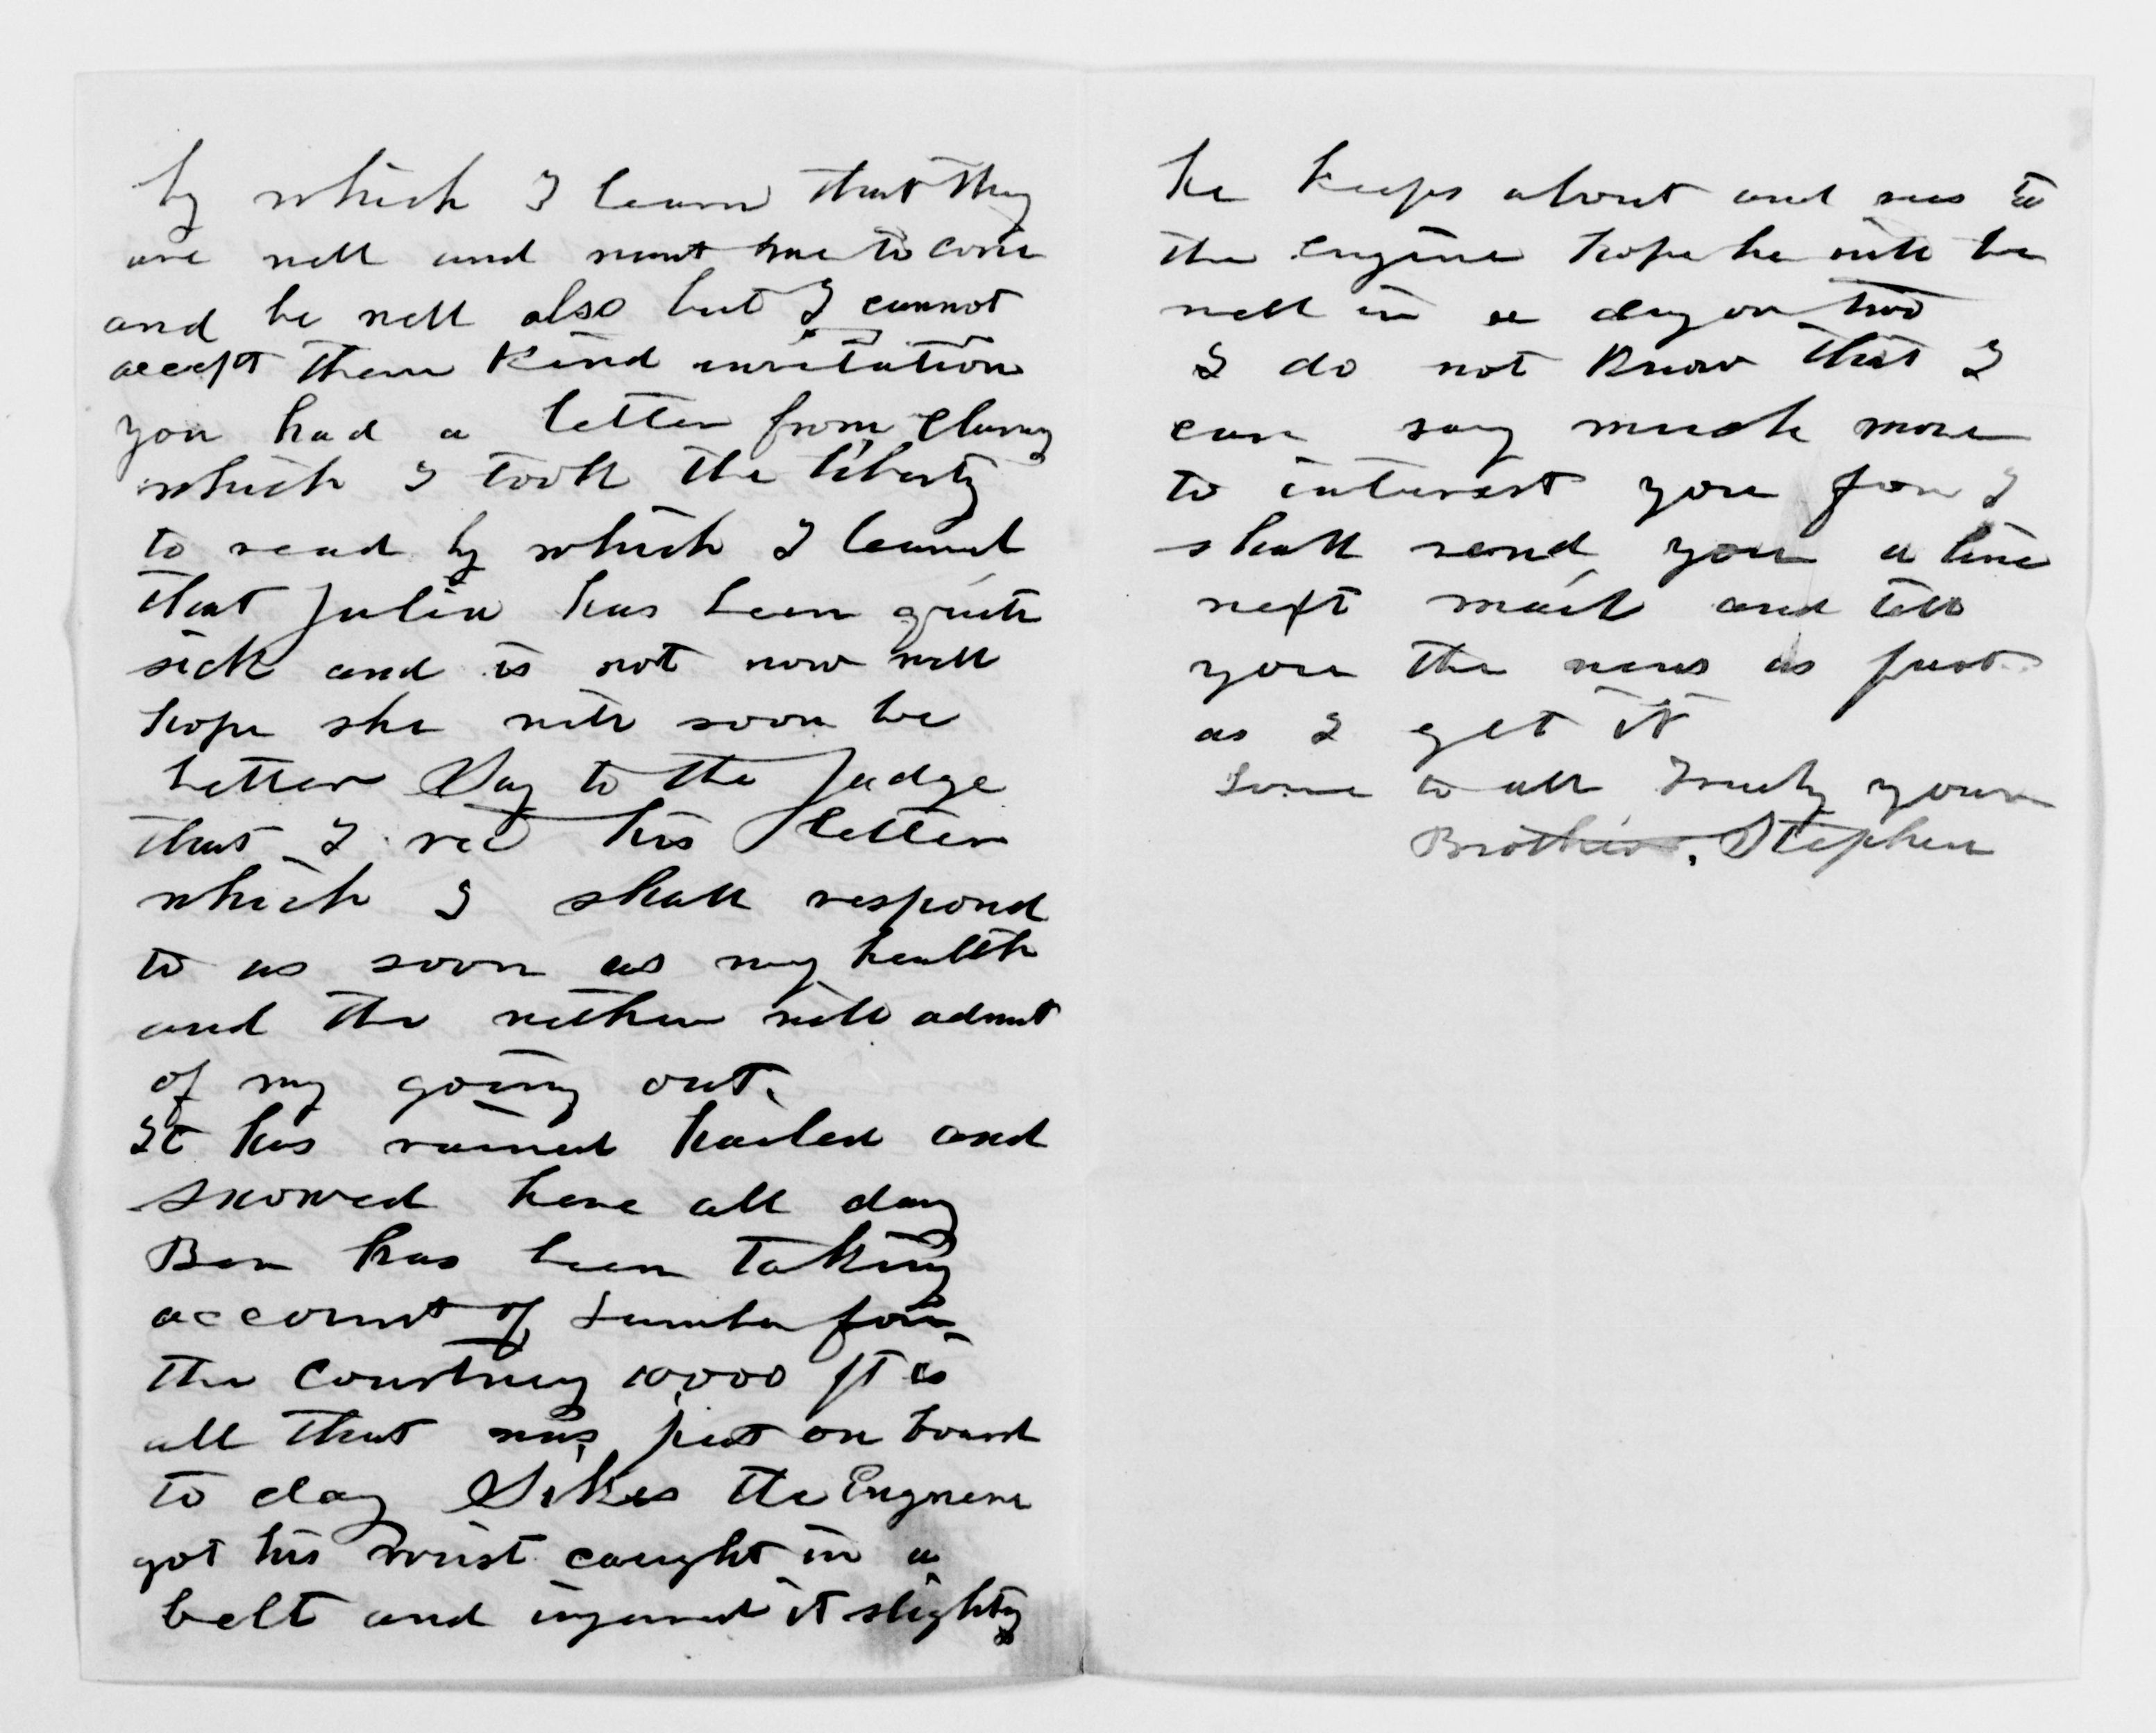 by which I learn that they
are well and want me to come
and be well also but I cannot
accept there Kind invitation
you had a letter from
which I took the liberty
to read by which I learnd
that Julia has been quite
sick and is not now well
hope she will soon be
better Say to the Judge
that I red his letter
which I shall respond
to as soon as my health
and the wether will admit
of my going out.
It has rained hailed and
snowed here all day
Ben has been taking
account of Lumber for
the Courtney 10,000 ft is
all that was put on board
to day Sikes the Engineer
got his wrist caught in a
belt and injured it slighty
he keeps about and sees to
the engine hope he will be
well in a day or two
I do not Know that I
can say much more
to interest you for I
shall send you a line
next mail and tell
you the news as fast
as I get it
Love to all Truly your
Brother, Stephen